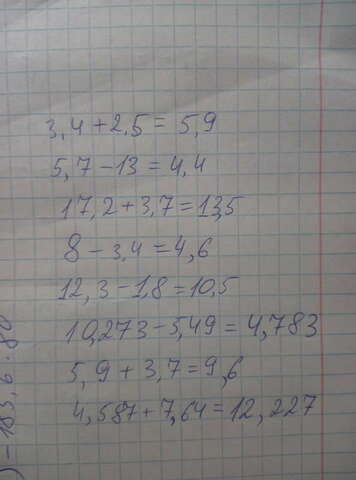 3,4 + 2,5 = 5,9
5,7 - 13 = 4,4
17,2 + 3,7 = 13,5
8 - 3,4 = 4,6
12,3 - 1,8 = 10,5
10,273 - 5,49 = 4,783
5,9 + 3,7 = 9,6
4,587 + 7,64 = 12,227